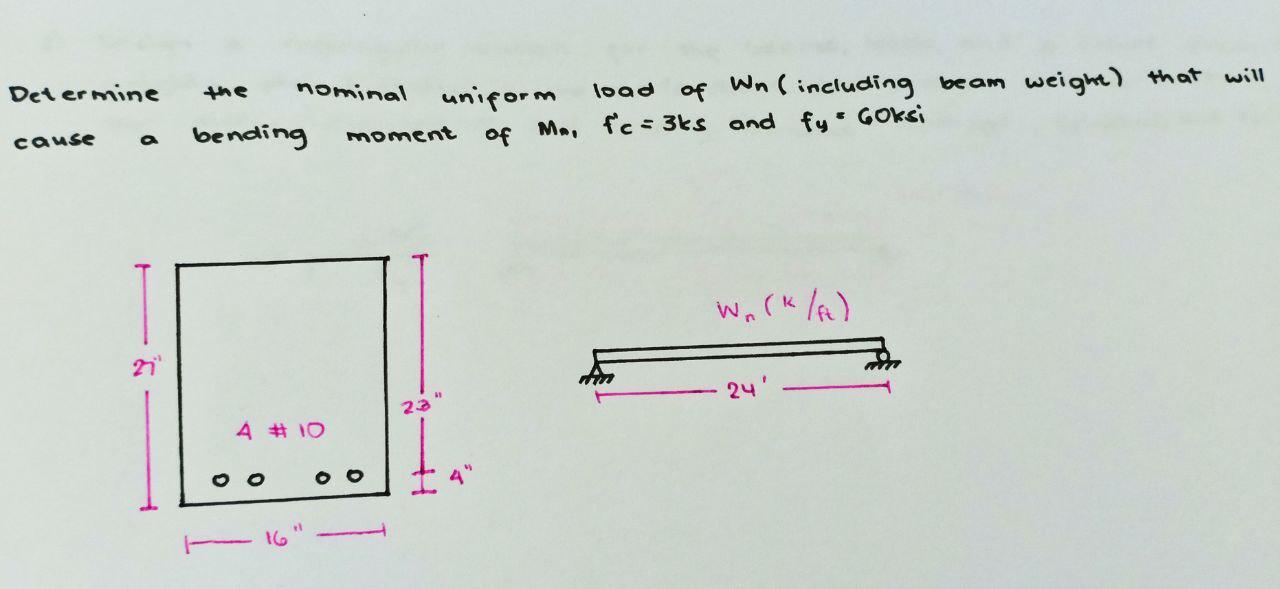 Determine the nominal uniform load of Wn (including beam weight) that will
cause a bending moment of Mn, f'c = 3ks and fy = 60ksi
Wn (k/ft)
27"
23"
24'
4 #10
4"
16"